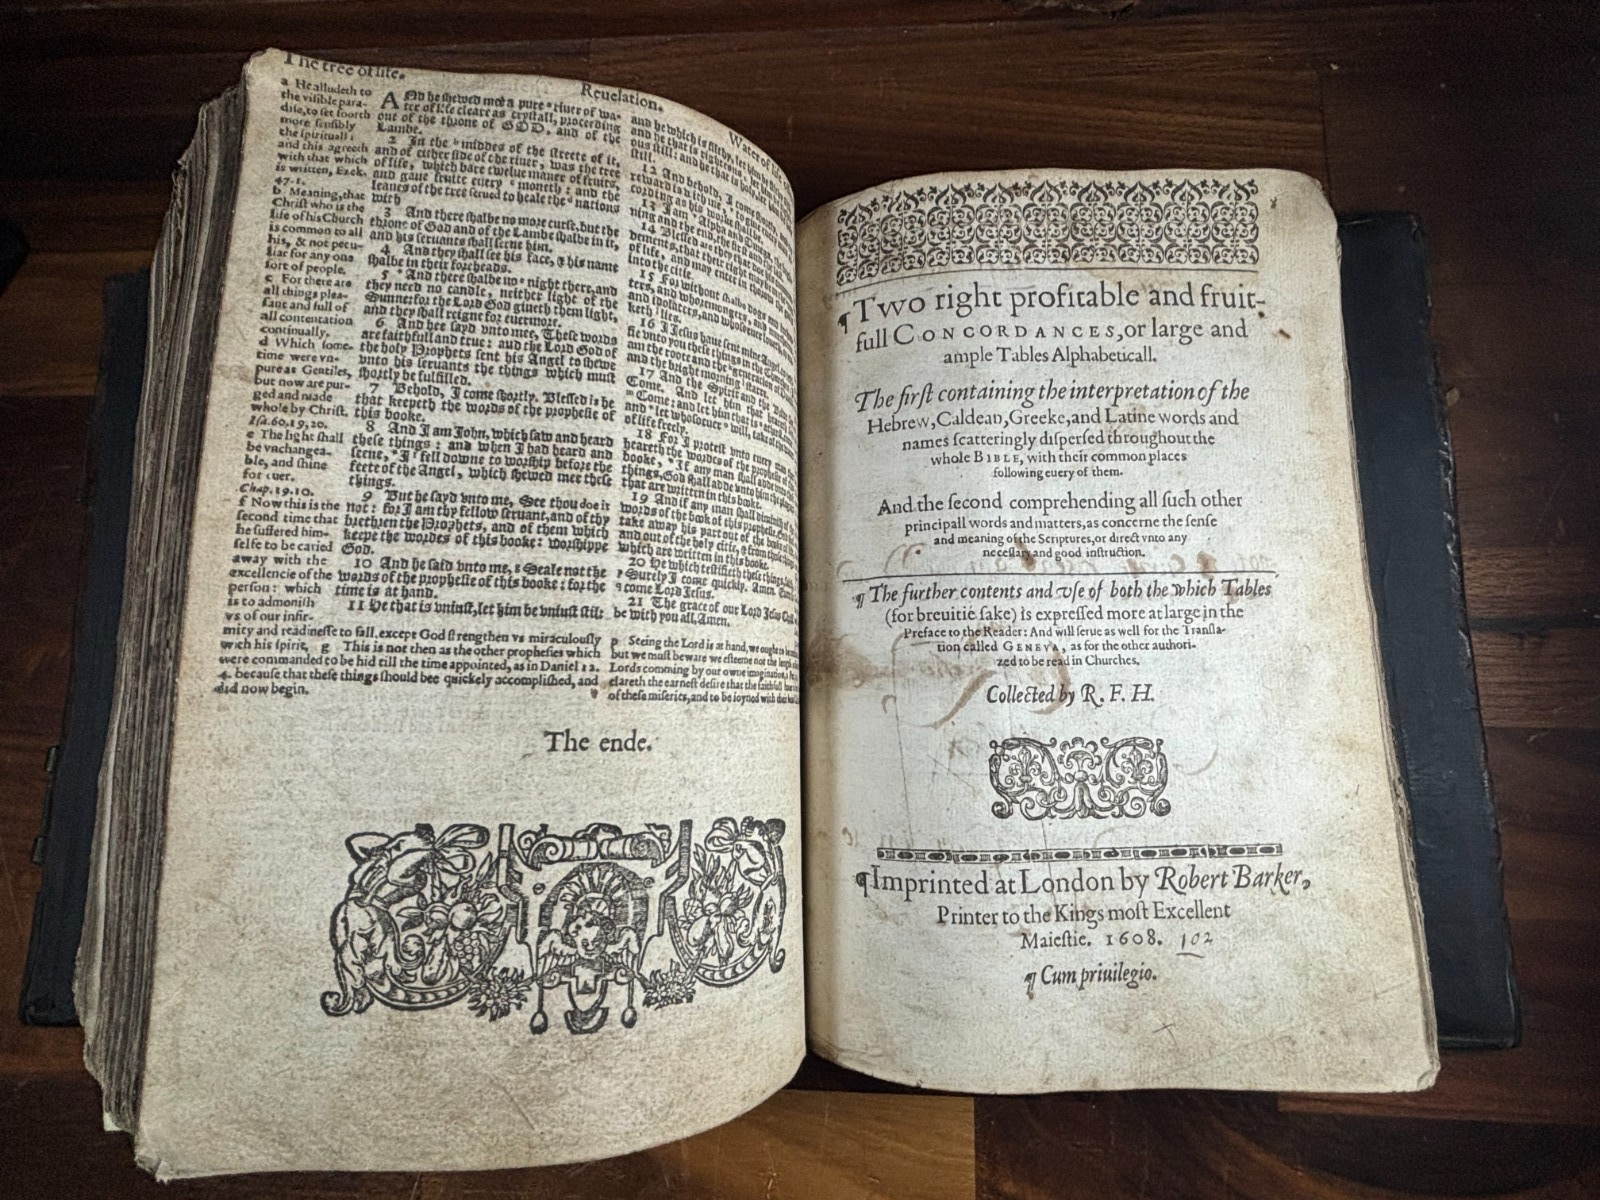 The tree of life.
Reuelation.
Water of life
a He alludeth to
the visible para-
dise, to set foorth
more sensibly
the spirituall :
and this agreeth
with that which
is written, Ezek.
47.1.
b Meaning, that
Christ who is the
life of his Church
is common to all
his, & not pecu-
liar for any one
sort of people.
c For there are
all things plea-
sant and full of
all contentation
continually.
d Which some-
time were vn-
pure as Gentiles,
but now are pur-
ged and made
whole by Christ.
Isa.60.19,20.
e The light shall
be vnchangea-
ble, and shine
for euer.
Chap.19.10.
f Now this is the
second time that
he suffered him-
selfe to be caried
away with the
excellencie of the
person : which
is to admonish
vs of our infir-
mity and readinesse to fall, except God strengthen vs miraculously
with his spirit, g This is not then as the other prophesies which
were commanded to be hid till the time appointed, as in Daniel 12.
4. because that these things should bee quickely accomplished, and
did now begin.
ANd he shewed mee a pure riuer of wa-
ter of life cleare as crystall, proceeding
out of the throne of GOD, and of the
Lambe.
2 In the middes of the streete of it,
and of either side of the riuer, was the tree
of life, which bare twelue maner of fruits,
and gaue fruite euery moneth : and the
leaues of the tree serued to heale the nations
with
3 And there shalbe no more curse, but the
throne of God and of the Lambe shalbe in it,
and his seruants shall serue him.
4 And they shall see his face, & his name
shalbe in their foreheads.
5 * And there shalbe no night there, and
they need no candle, neither light of the
Sunne: for the Lord God giueth them light,
and they shall reigne for euermore.
6 And hee sayd vnto mee, These words
are faithfull and true : and the Lord God of
the holy Prophets sent his Angel to shewe
vnto his seruants the things which must
shortly be fulfilled.
7 Behold, I come shortly. Blessed is he
that keepeth the words of the prophesie of
this booke.
8 And I am John, which saw and heard
these things : and when I had heard and
seene, * I fell downe to worship before the
feete of the Angel, which shewed mee these
things.
9 But he sayd vnto me, See thou doe it
not : for I am thy fellow seruant, and of thy
brethren the Prophets, and of them which
keepe the wordes of this booke : worshippe
God.
10 And he said vnto me, g Seale not the
words of the prophesie of this booke : for the
time is at hand.
11 He that is vniust, let him be vniust still:
and he which is
and he that is righteous,
ous still: and
still.
12 And behold, I come
reward is with me, to giue euery man
cording as his worke shalbe.
13 I am Alpha and Omega, the
ning and the end, the first and
14 Blessed are they, that
dements, that their right may be in
of life, and may enter in
into the citie.
15 For without shalbe dogs and
ters, and whoremongers, and
and idolaters, and whosoeuer
keth lies.
16 I Jesus haue sent mine Angel,
fie vnto you these things in the
am the roote and the generation
and the bright morning starre.
17 And the Spirit and the
Come. And let him that
Come: and let him that is
and * let whosoeuer will, take
of life freely.
18 For I protest vnto euery man
heareth the words of the prophesie
booke, * If any man shall adde vnto
things, God shall adde vnto him the
that are written in this booke.
19 And if any man shall diminish
words of the book of this prophesie, God
take away his part out of the booke of
and out of the holy citie, & from those
which are written in this booke.
20 He which testifieth these things,
Surely I come quickly. Amen.
come Lord Jesus.
21 The grace of our Lord Jesus
be with you all, Amen.
p Seeing the Lord is at hand, we ought to be
but we must beware we esteeme not the length
Lords comming by our owne imagination,
clareth the earnest desire that the faithfull
of these miseries, and to be ioyned with
The ende.
¶ Two right profitable and fruit-
full CONCORDANCES, or large and
ample Tables Alphabeticall.
The first containing the interpretation of the
Hebrew, Caldean, Greeke, and Latine words and
names scatteringly dispersed throughout the
whole BIBLE, with their common places
following euery of them.
And the second comprehending all such other
principall words and matters, as concerne the sense
and meaning of the Scriptures, or direct vnto any
necessary and good instruction.
¶ The further contents and vse of both the which Tables
(for breuitie sake) is expressed more at large in the
Preface to the Reader: And will serue as well for the Transla-
tion called GENEVA, as for the other authori-
zed to be read in Churches.
Collected by R. F. H.
¶ Imprinted at London by Robert Barker,
Printer to the Kings most Excellent
Maiestie. 1608. 102
¶ Cum priuilegio.